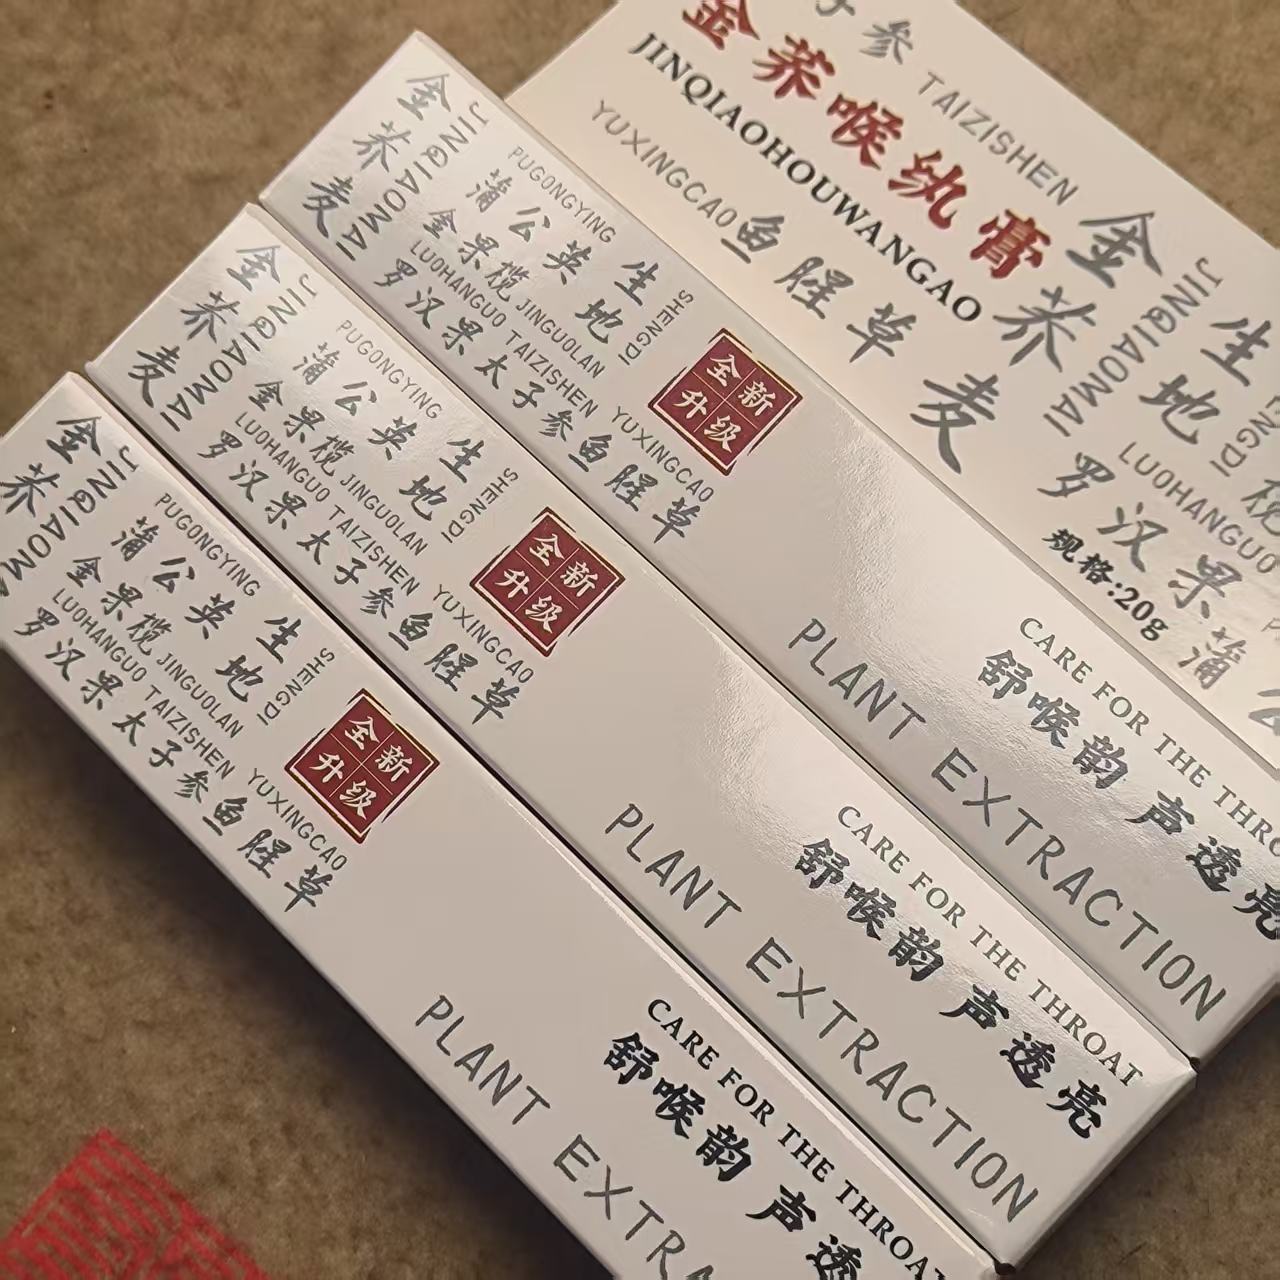 子参 TAIZISHEN
金荞喉纨膏
JINQIAOHOUWANGAO
YUXINGCAO 鱼腥草
金荞麦
JINQIAOMAI
生地
罗汉果
LUOHANGUO
规格:20g
蒲
金荞麦
JINQIAOMAI
PUGONGYING
蒲公英 生地
SHENGDI
金果榄 JINGUOLAN
LUOHANGUO TAIZISHEN YUXINGCAO
罗汉果太子参鱼腥草
全新
升级
CARE FOR THE THRO
舒喉韵 声透亮
PLANT EXTRACTION
金荞麦
JINQIAOMAI
PUGONGYING
蒲公英 生地
SHENGDI
金果榄 JINGUOLAN
LUOHANGUO TAIZISHEN YUXINGCAO
罗汉果太子参鱼腥草
全新
升级
CARE FOR THE THROAT
舒喉韵 声透亮
PLANT EXTRACTION
金荞
JINQIAOM
PUGONGYING
蒲公英 生地
SHENGDI
金果榄 JINGUOLAN
LUOHANGUO TAIZISHEN YUXINGCAO
罗汉果太子参鱼腥草
全新
升级
CARE FOR THE THROAT
舒喉韵 声透
PLANT EXTRA